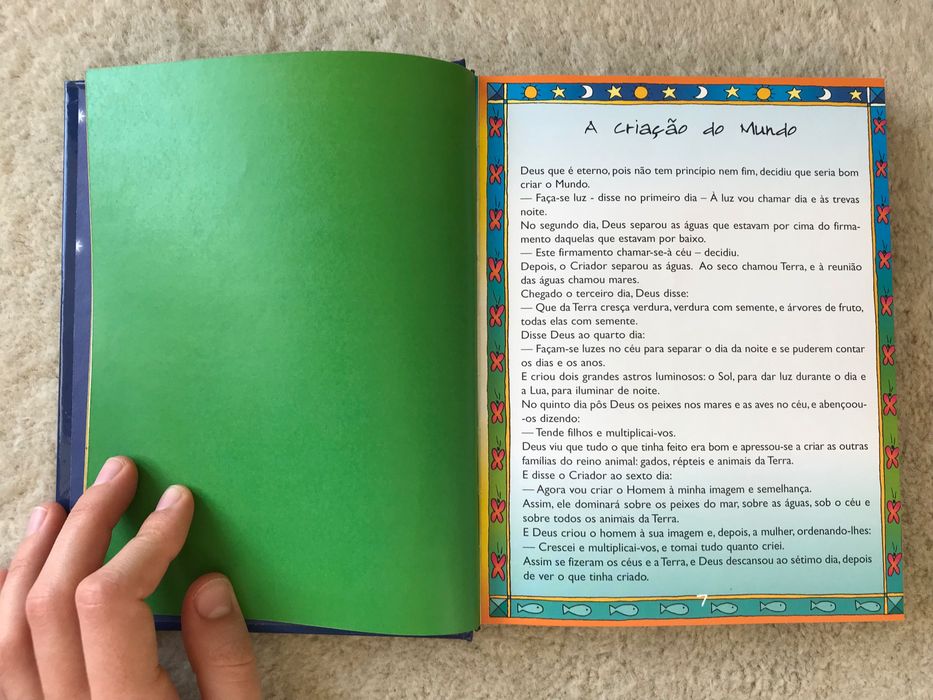 A Criação do Mundo
Deus que é eterno, pois não tem princípio nem fim, decidiu que seria bom
criar o Mundo.
— Faça-se luz - disse no primeiro dia – À luz vou chamar dia e às trevas
noite.
No segundo dia, Deus separou as águas que estavam por cima do firma-
mento daquelas que estavam por baixo.
— Este firmamento chamar-se-à céu – decidiu.
Depois, o Criador separou as águas. Ao seco chamou Terra, e à reunião
das águas chamou mares.
Chegado o terceiro dia, Deus disse:
— Que da Terra cresça verdura, verdura com semente, e árvores de fruto,
todas elas com semente.
Disse Deus ao quarto dia:
— Façam-se luzes no céu para separar o dia da noite e se puderem contar
os dias e os anos.
E criou dois grandes astros luminosos: o Sol, para dar luz durante o dia e
a Lua, para iluminar de noite.
No quinto dia pôs Deus os peixes nos mares e as aves no céu, e abençoou-
-os dizendo:
— Tende filhos e multiplicai-vos.
Deus viu que tudo o que tinha feito era bom e apressou-se a criar as outras
famílias do reino animal: gados, répteis e animais da Terra.
E disse o Criador ao sexto dia:
— Agora vou criar o Homem à minha imagem e semelhança.
Assim, ele dominará sobre os peixes do mar, sobre as águas, sob o céu e
sobre todos os animais da Terra.
E Deus criou o homem à sua imagem e, depois, a mulher, ordenando-lhes:
— Crescei e multiplicai-vos, e tomai tudo quanto criei.
Assim se fizeram os céus e a Terra, e Deus descansou ao sétimo dia, depois
de ver o que tinha criado.
7